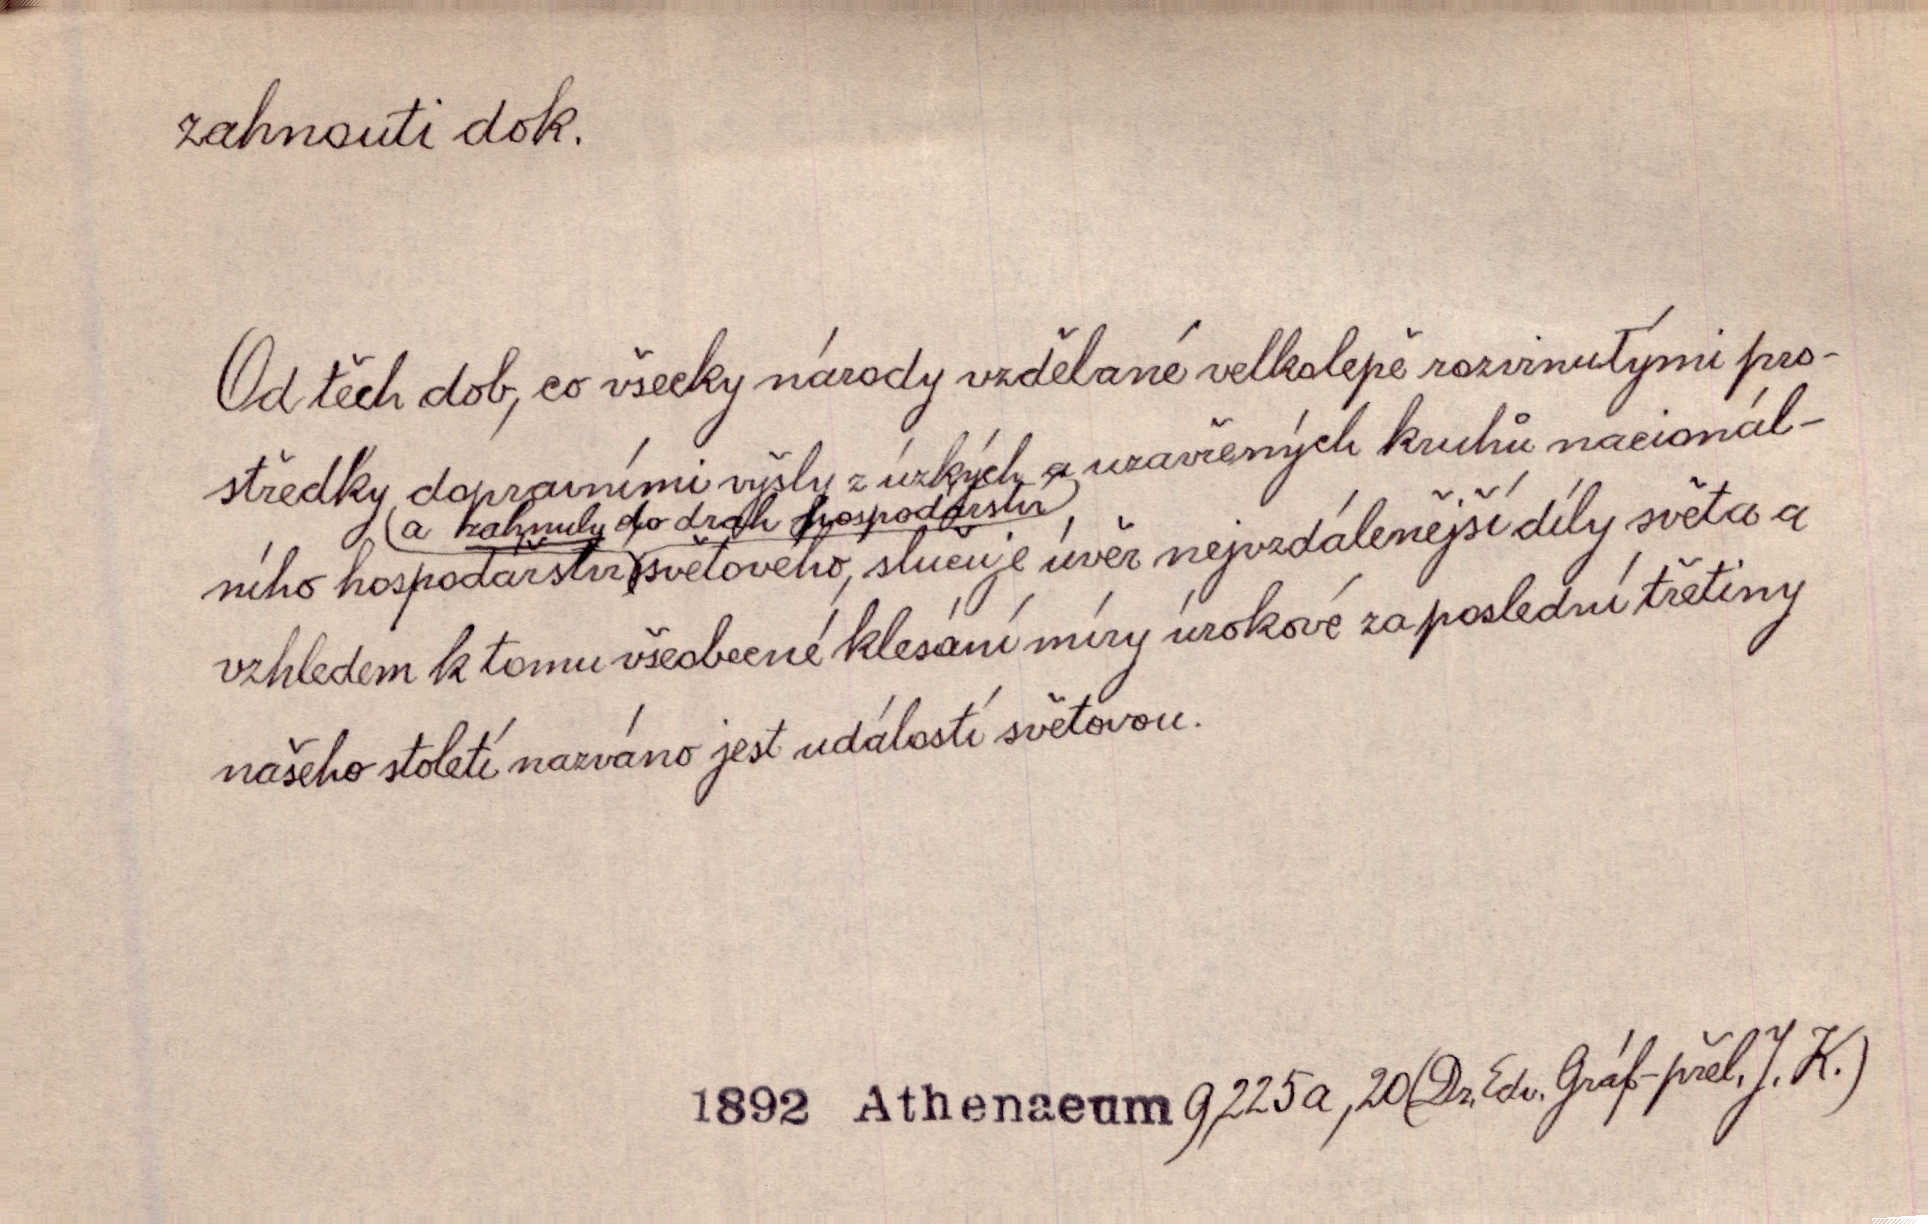 zahnouti dok.
Od těch dob, co všecky národy vzdělané velkolepě rozvinutými pro-
středky dopravními vyšly z úzkých a uzavřených kruhů nacionál-
(a zahnuly do drah hospodářství)
ního hospodářství světového, slučuje úvěr nejvzdálenější díly světa a
vzhledem k tomu všeobecné klesání míry úrokové za poslední třetiny
našeho století nazváno jest událostí světovou.
1892 Athenaeum 9, 225a, 20 (Dr. Edv. Gráf - přel. J. K.)